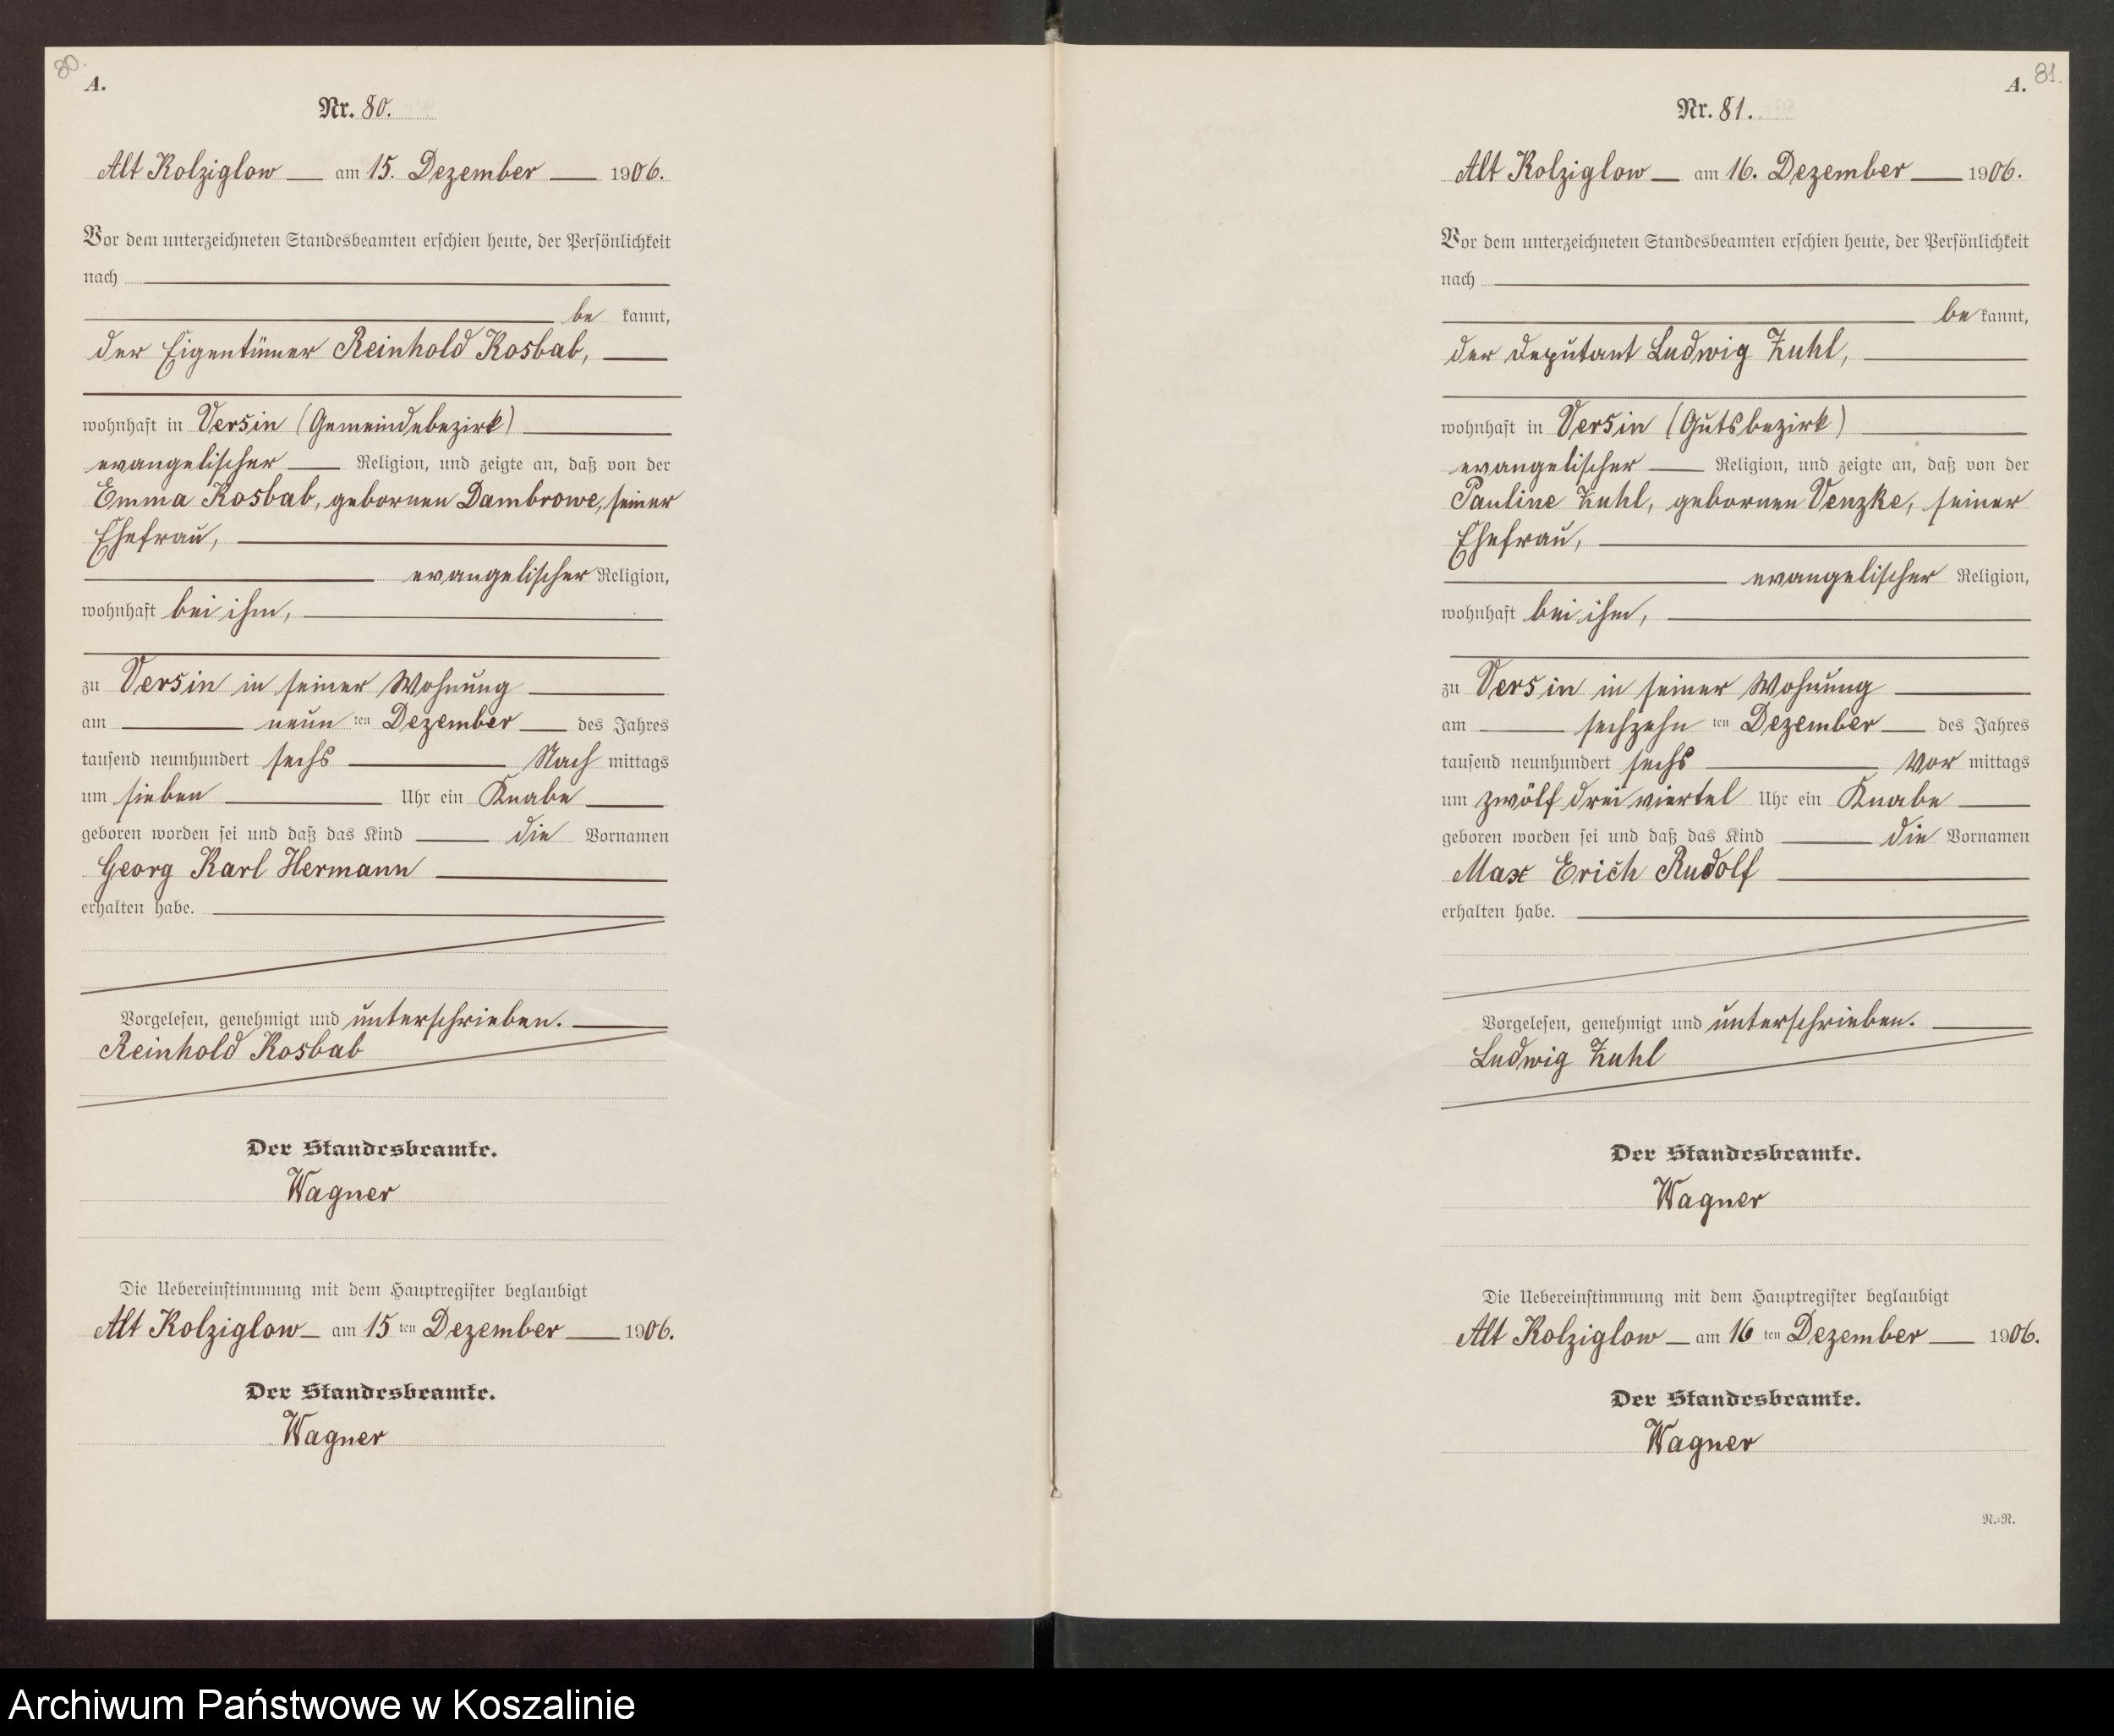 80.
A.
Nr. 80.
Alt Kolziglow am 15. Dezember 1906.
Vor dem unterzeichneten Standesbeamten erschien heute, der Persönlichkeit
nach
be kannt,
der Eigentümer Reinhold Kosbab,
wohnhaft in Versin (Gemeindebezirk)
evangelischer Religion, und zeigte an, daß von der
Emma Kosbab, gebornen Dambrowe, seiner
Ehefrau,
evangelischer Religion,
wohnhaft bei ihm,
zu Versin in seiner Wohnung
am neun ten Dezember des Jahres
tausend neunhundert sechs Nach mittags
um sieben Uhr ein Knabe
geboren worden sei und daß das Kind die Vornamen
Georg Karl Hermann
erhalten habe.
Vorgelesen, genehmigt und unterschrieben.
Reinhold Kosbab
Der Standesbeamte.
Wagner
Die Uebereinstimmung mit dem Hauptregister beglaubigt
Alt Kolziglow am 15 ten Dezember 1906.
Der Standesbeamte.
Wagner
81.
A.
Nr. 81.
Alt Kolziglow am 16. Dezember 1906.
Vor dem unterzeichneten Standesbeamten erschien heute, der Persönlichkeit
nach
be kannt,
der Deputant Ludwig Zuhl,
wohnhaft in Versin (Gutsbezirk)
evangelischer Religion, und zeigte an, daß von der
Pauline Zuhl, gebornen Venzke, seiner
Ehefrau,
evangelischer Religion,
wohnhaft bei ihm,
zu Versin in seiner Wohnung
am sechzehn ten Dezember des Jahres
tausend neunhundert sechs Vor mittags
um zwölf drei viertel Uhr ein Knabe
geboren worden sei und daß das Kind die Vornamen
Max Erich Rudolf
erhalten habe.
Vorgelesen, genehmigt und unterschrieben.
Ludwig Zuhl
Der Standesbeamte.
Wagner
Die Uebereinstimmung mit dem Hauptregister beglaubigt
Alt Kolziglow am 16 ten Dezember 1906.
Der Standesbeamte.
Wagner
N.=N.
Archiwum Państwowe w Koszalinie